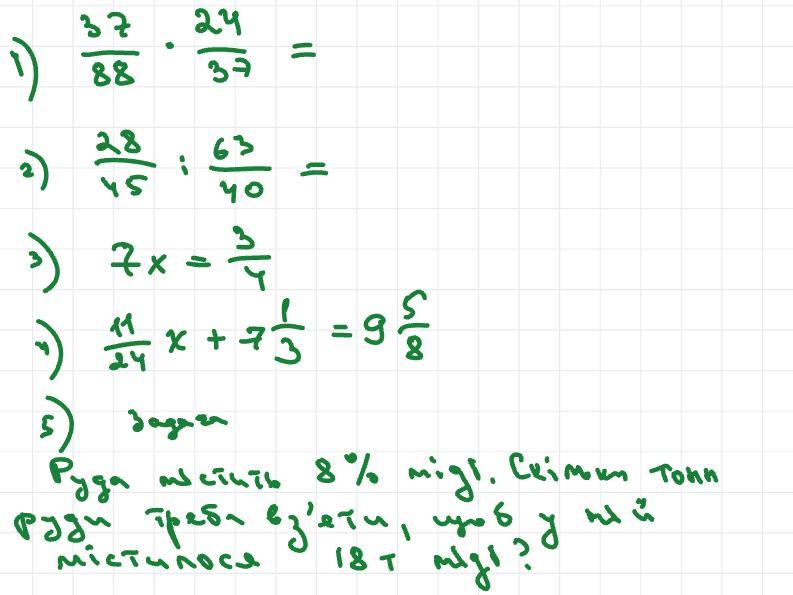 1) 37/88 · 24/37 =
2) 28/45 : 63/40 =
3) 7x = 3/4
4) 11/24 x + 7 1/3 = 9 5/8
5) Задача
Руда містить 8% міді. Скільки тонн
руди треба взяти, щоб у ній
містилося 18 т міді?